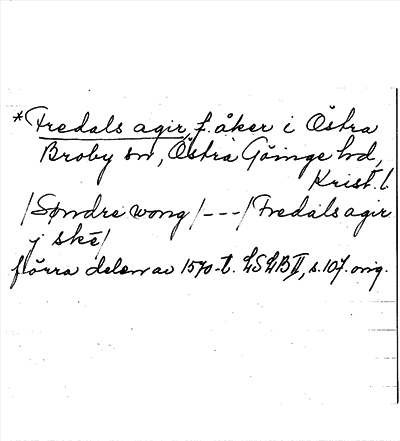 *Fredals agir, f. åker i Östra
Broby sn, Östra Göinge hd,
Krist. l.
/Søndre wong/---/Fredals agir
j ske/
förra delen av 1570-t. LSLB II, s. 107. orig.